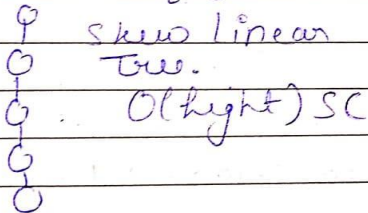 skew linear
Tree.
O(hight) SC